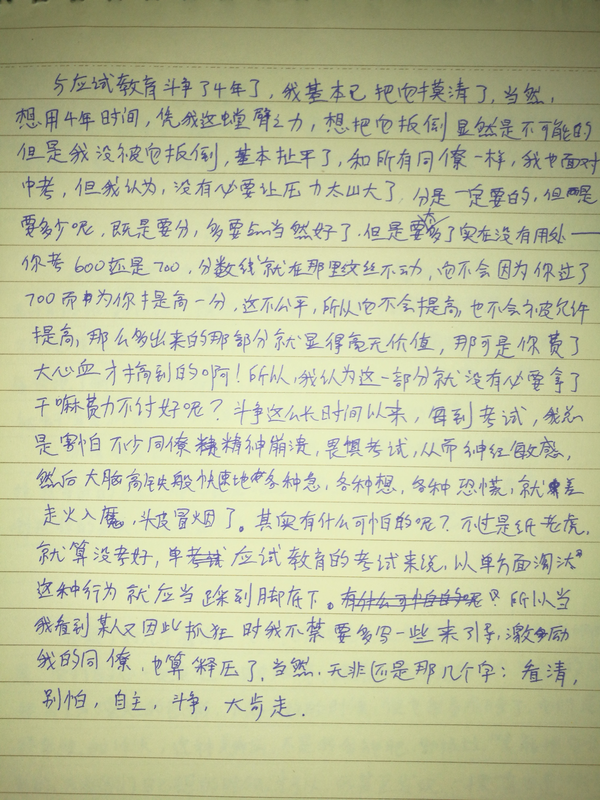 与应试教育斗争了4年了，我基本已把它摸清了，当然，
想用4年时间，凭我这螳臂之力，想把它扳倒显然是不可能的
但是我没被它扳倒，基本扯平了，和所有同僚一样，我也面对
中考，但我认为，没有必要让压力太山大了，分是一定要的，但是
要多少呢，既是要分，多要点当然好了，但是要太多了实在没有用处——
你考600还是700，分数线就在那里纹丝不动，它不会因为你过了
700而为你提高一分，这不公平，所以它不会提高，也不会被允许
提高，那么多出来的那部分就显得毫无价值，那可是你费了
大心血才搞到的啊！所以，我认为这一部分就没有必要拿了
干嘛费力不讨好呢？斗争这么长时间以来，每到考试，我总
是害怕不少同僚精神崩溃，畏惧考试，从而神经敏感，
然后大脑高铁般快速地各种急，各种想，各种恐慌，就差
走火入魔，头皮冒烟了。其实有什么可怕的呢？不过是纸老虎，
就算没考好，单考应试教育的考试来说，以单方面淘汰
这种行为就应当踩到脚底下。有什么可怕的呢？所以当
我看到某人又因此抓狂时我不禁要多写一些来引导，激励
我的同僚，也算释压了，当然，无非还是那几个字：看清，
别怕，自主，斗争，大步走．